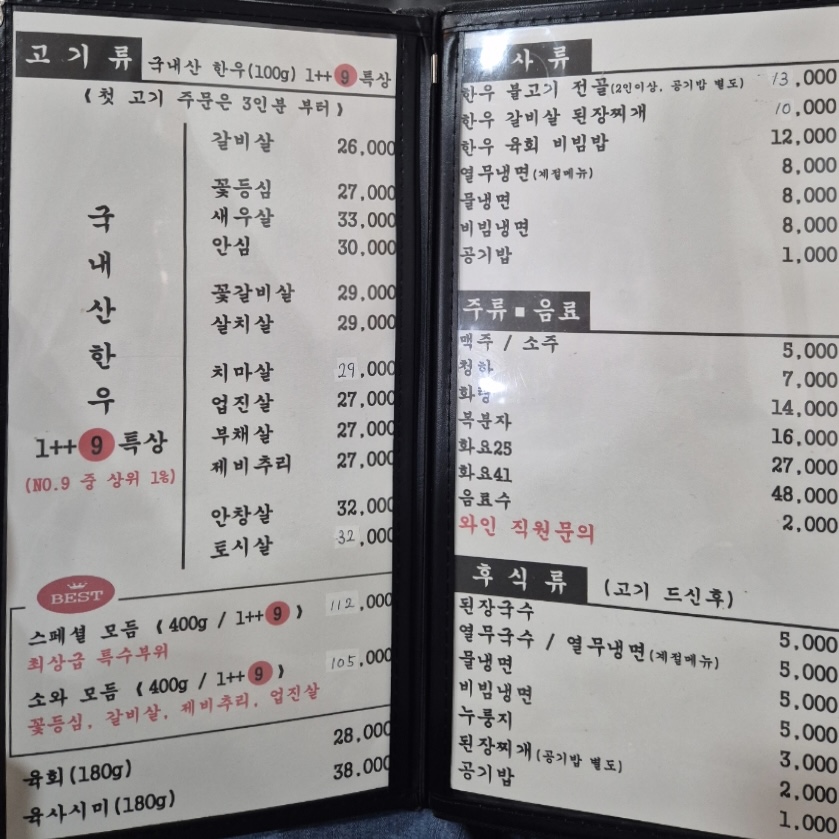 고기류 국내산 한우(100g) 1++9 특상
(첫 고기 주문은 3인분 부터)
국내산한우
1++9 특상
(NO.9 중 상위 1%)
갈비살 26,000
꽃등심 27,000
새우살 33,000
안심 30,000
꽃갈비살 29,000
살치살 29,000
치마살 29,000
업진살 27,000
부채살 27,000
제비추리 27,000
안창살 32,000
토시살 32,000
BEST
스페셜 모듬 (400g / 1++9) 112,000
최상급 특수부위
소와 모듬 (400g / 1++9) 105,000
꽃등심, 갈비살, 제비추리, 업진살
육회(180g) 28,000
육사시미(180g) 38,000
사류
한우 불고기 전골(2인이상, 공기밥 별도) 13,000
한우 갈비살 된장찌개 10,000
한우 육회 비빔밥 12,000
열무냉면(계절메뉴) 8,000
물냉면 8,000
비빔냉면 8,000
공기밥 1,000
주류■음료
맥주 / 소주 5,000
청하 7,000
화랑 14,000
복분자 16,000
화요25 27,000
화요41 48,000
음료수 2,000
와인 직원문의
후식류 (고기 드신후)
된장국수 5,000
열무국수 / 열무냉면(계절메뉴) 5,000
물냉면 5,000
비빔냉면 5,000
누룽지 3,000
된장찌개(공기밥 별도) 2,000
공기밥 1,000